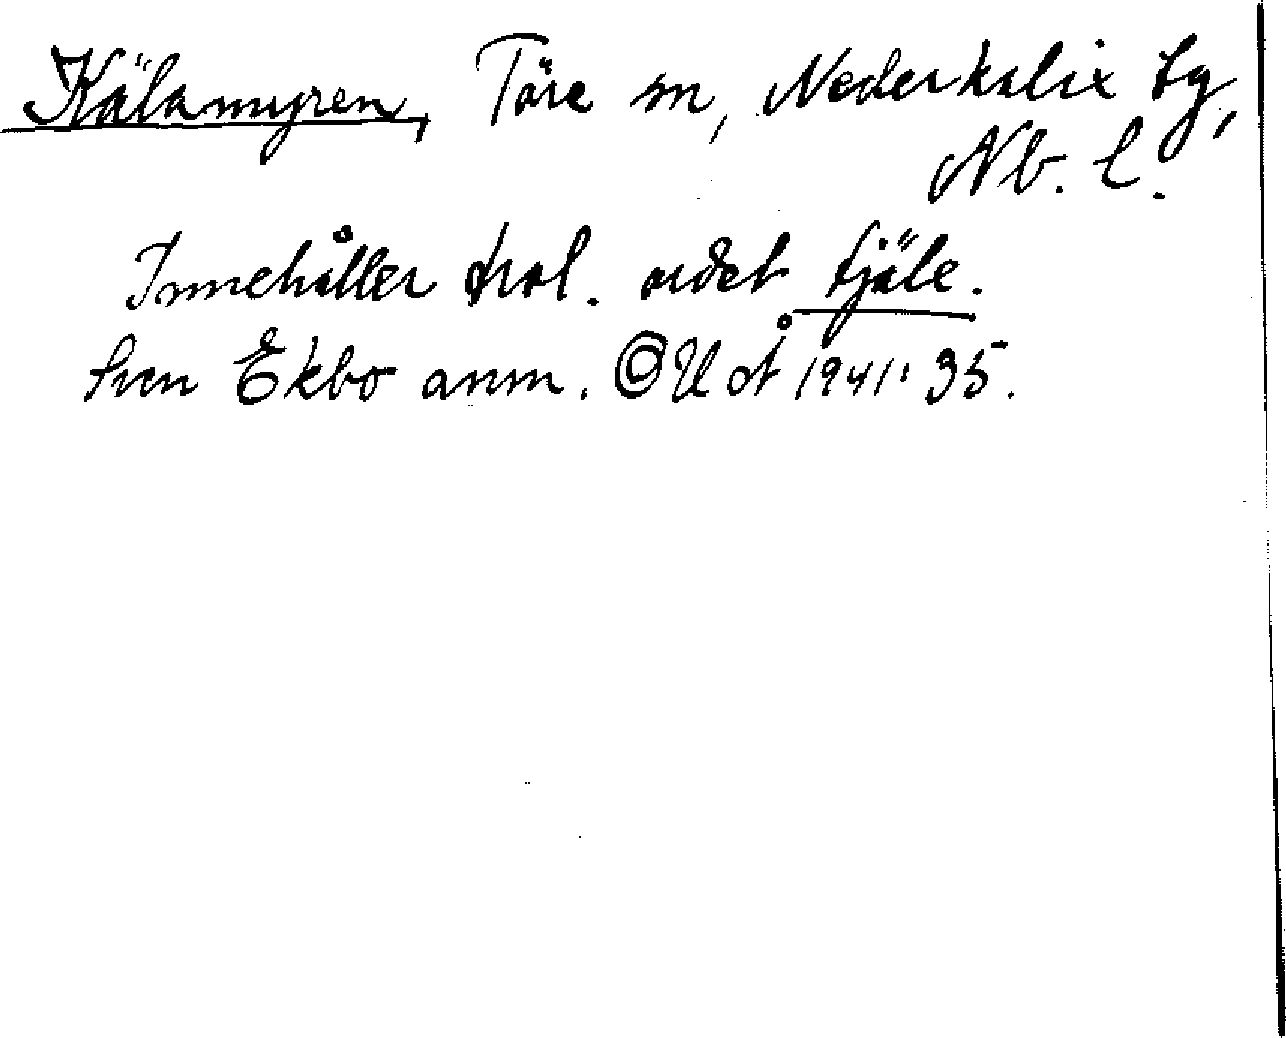 Kälamyren, Töre sn, Nederkalix tg,
Nb. l.
Innehåller trol. ordet tjäle.
Sven Ekbo anm. ©UoÅ 1941: 35.